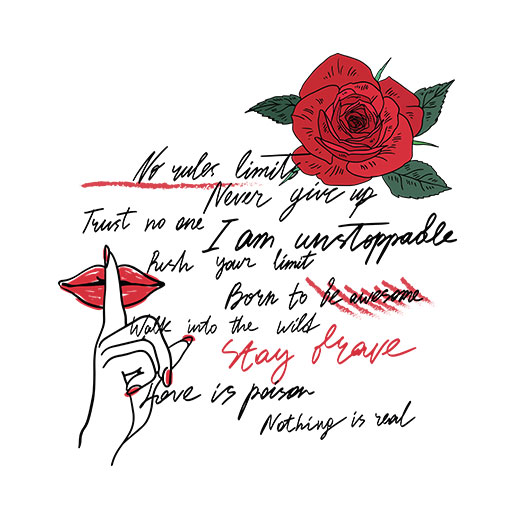 No rules limits
Never give up
Trust no one
I am unstoppable
Push your limit
Born to be awesome
Walk into the wild
Stay brave
Love is poison
Nothing is real